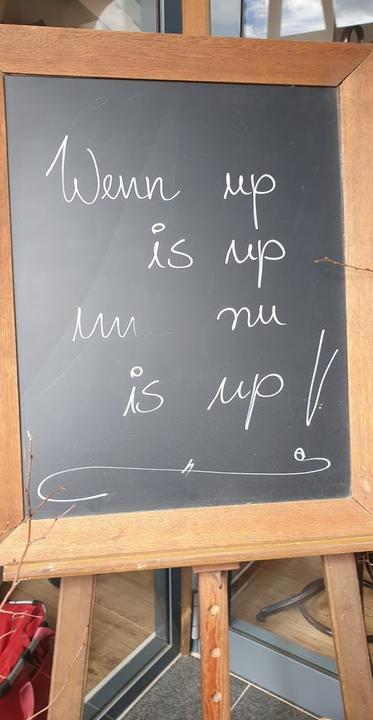 Wenn up
is up
un nu
is up!